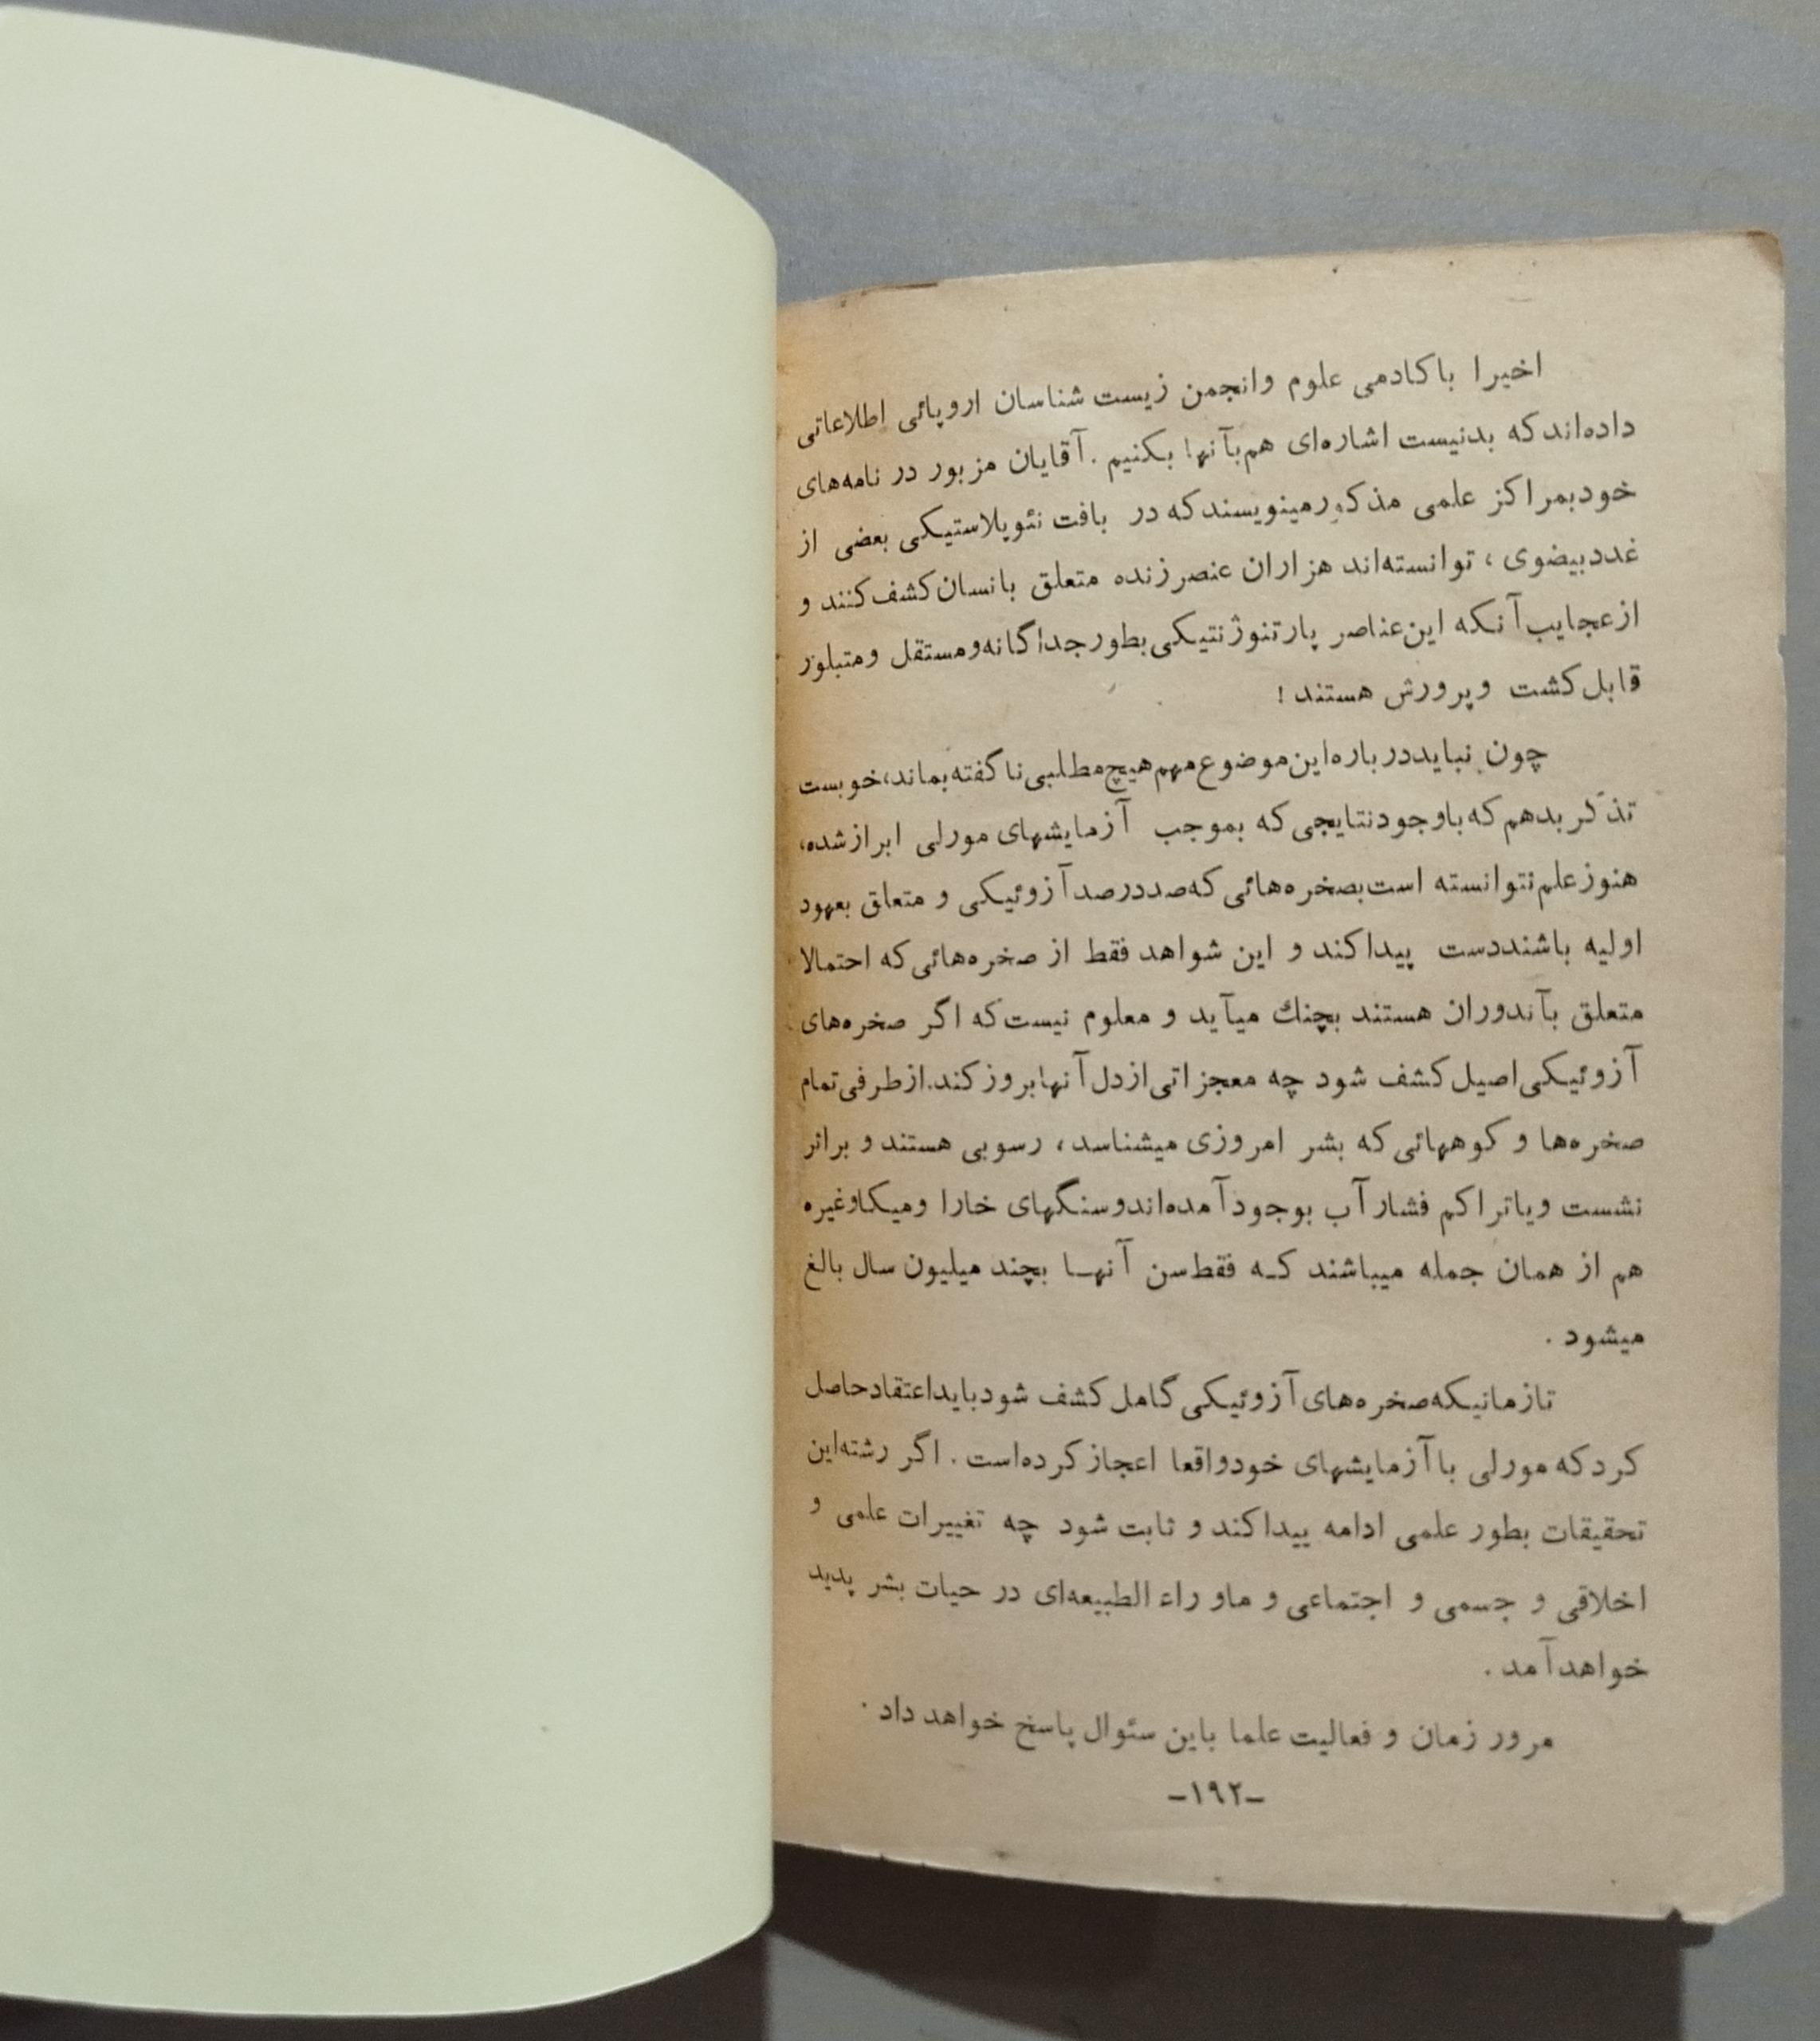 اخیرا باکادمی علوم وانجمن زیست شناسان اروپائی اطلاعاتی
داده‌اند که بدنیست اشاره‌ای هم بآنها بکنیم . آقایان مزبور در نامه‌های
خودبمراکز علمی مذکور مینویسند که در بافت نئوپلاستیکی بعضی از
غدد بیضوی ، توانسته‌اند هزاران عنصر زنده متعلق بانسان کشف کنند و
از عجایب آنکه این عناصر پارتنوژنتیکی بطور جداگانه و مستقل و متبلور
قابل کشت و پرورش هستند !
چون نباید درباره این موضوع مهم هیچ مطلبی ناگفته بماند، خوبست
تذکر بدهم که باوجود نتایجی که بموجب آزمایشهای مورلی ابراز شده،
هنوز علم نتوانسته است بصخره‌هائی که صددرصد آزوئیکی و متعلق بعهود
اولیه باشند دست پیدا کند و این شواهد فقط از صخره‌هائی که احتمالا
متعلق بآندوران هستند بچنك میآید و معلوم نیست که اگر صخره‌های
آزوئیکی اصیل کشف شود چه معجزاتی از دل آنها بروز کند. از طرفی تمام
صخره‌ها و کوههائی که بشر امروزی میشناسد ، رسوبی هستند و براثر
نشست و یا تراکم فشار آب بوجود آمده‌اند و سنگهای خارا و میکا و غیره
هم از همان جمله میباشند کـه فقط سن آنهـا بچند میلیون سال بالغ
میشود .
تا زمانیکه صخره‌های آزوئیکی کامل کشف شود باید اعتقاد حاصل
کرد که مورلی با آزمایشهای خود واقعا اعجاز کرده است . اگر رشته این
تحقیقات بطور علمی ادامه پیدا کند و ثابت شود چه تغییرات علمی و
اخلاقی و جسمی و اجتماعی و ماوراء الطبیعه‌ای در حیات بشر پدید
خواهد آمد .
مرور زمان و فعالیت علما باین سئوال پاسخ خواهد داد .
-۱۹۲-